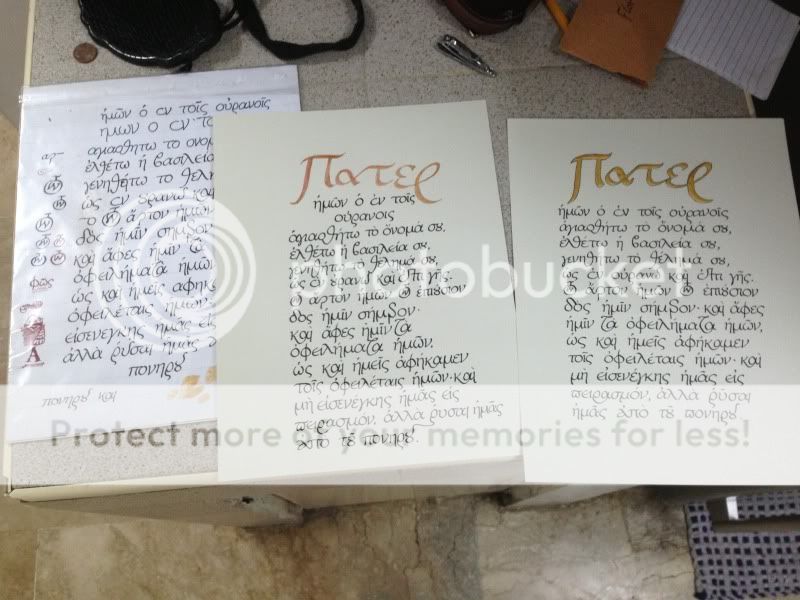 ἡμῶν ὁ ἐν τοῖς οὐρανοῖς
ἡμων ο ἐν
αγιασθητω το
ἐλθέτω ἡ βασιλεία
γενηθήτω το
ὡς ἐν καὶ
το ἄρτον ἡμῶν
δος ἡμῖν σήμερον
καὶ ἄφες ἡμῖν τα
ὀφειλήματα ἡμῶν
ὡς καὶ ἡμεῖς
ὀφειλέταις ἡμῶν
εἰσενέγκης ἡμᾶς εἰς
ἀλλὰ ῥῦσαι ἡμᾶς
πονηρȣ
πονηρȣ και
φῶς
A
Πατερ
ἡμῶν ὁ ἐν τοῖς
οὐρανοις
ἁγιασθήτω τὸ ὄνομά σȣ,
ἐλθέτω ἡ βασιλεία σȣ,
γενηθήτω τὸ θέλημά σȣ,
ὡς ἐν ȣρανῶ καὶ ἐπι γῆς.
ἄρτον ἡμῶν ἐπιȣσιον
δὸς ἡμῖν σήμερον·
καὶ ἄφες ἡμῖν τὰ
ὀφειλήματα ἡμῶν,
ὡς καὶ ἡμεῖς ἀφήκαμεν
τοῖς ὀφειλέταις ἡμῶν· καὶ
μὴ εἰσενέγκης ἡμᾶς εἰς
πειρασμόν, ἀλλὰ ῥῦσαι ἡμᾶς
ἀπὸ τȣ πονηρȣ.
Πατερ
ἡμῶν ὁ ἐν τοῖς οὐρανοῖς
ἁγιασθήτω τὸ ὄνομά σȣ,
ἐλθέτω ἡ βασιλεία σȣ,
γενηθήτω τὸ θέλημά σȣ,
ὡς ἐν ȣρανῶ καὶ ἐπι γῆς.
ἄρτον ἡμῶν ἐπιȣσιον
δὸς ἡμῖν σήμερον· καὶ ἄφες
ἡμῖν τὰ ὀφειλήματα ἡμῶν,
ὡς καὶ ἡμεῖς ἀφήκαμεν
τοῖς ὀφειλέταις ἡμῶν· καὶ
μὴ εἰσενέγκης ἡμᾶς εἰς
πειρασμόν, ἀλλὰ ῥῦσαι
ἡμᾶς ἀπὸ τȣ πονηρȣ.
photobucket
Protect more of your memories for less!